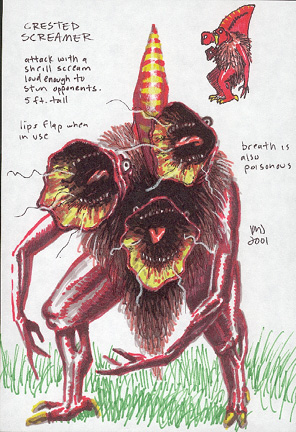 CRESTED
SCREAMER
attack with a
shrill scream
loud enough to
stun opponents.
5 ft. tall
lips flap when
in use
breath is
also
poisonous
2001